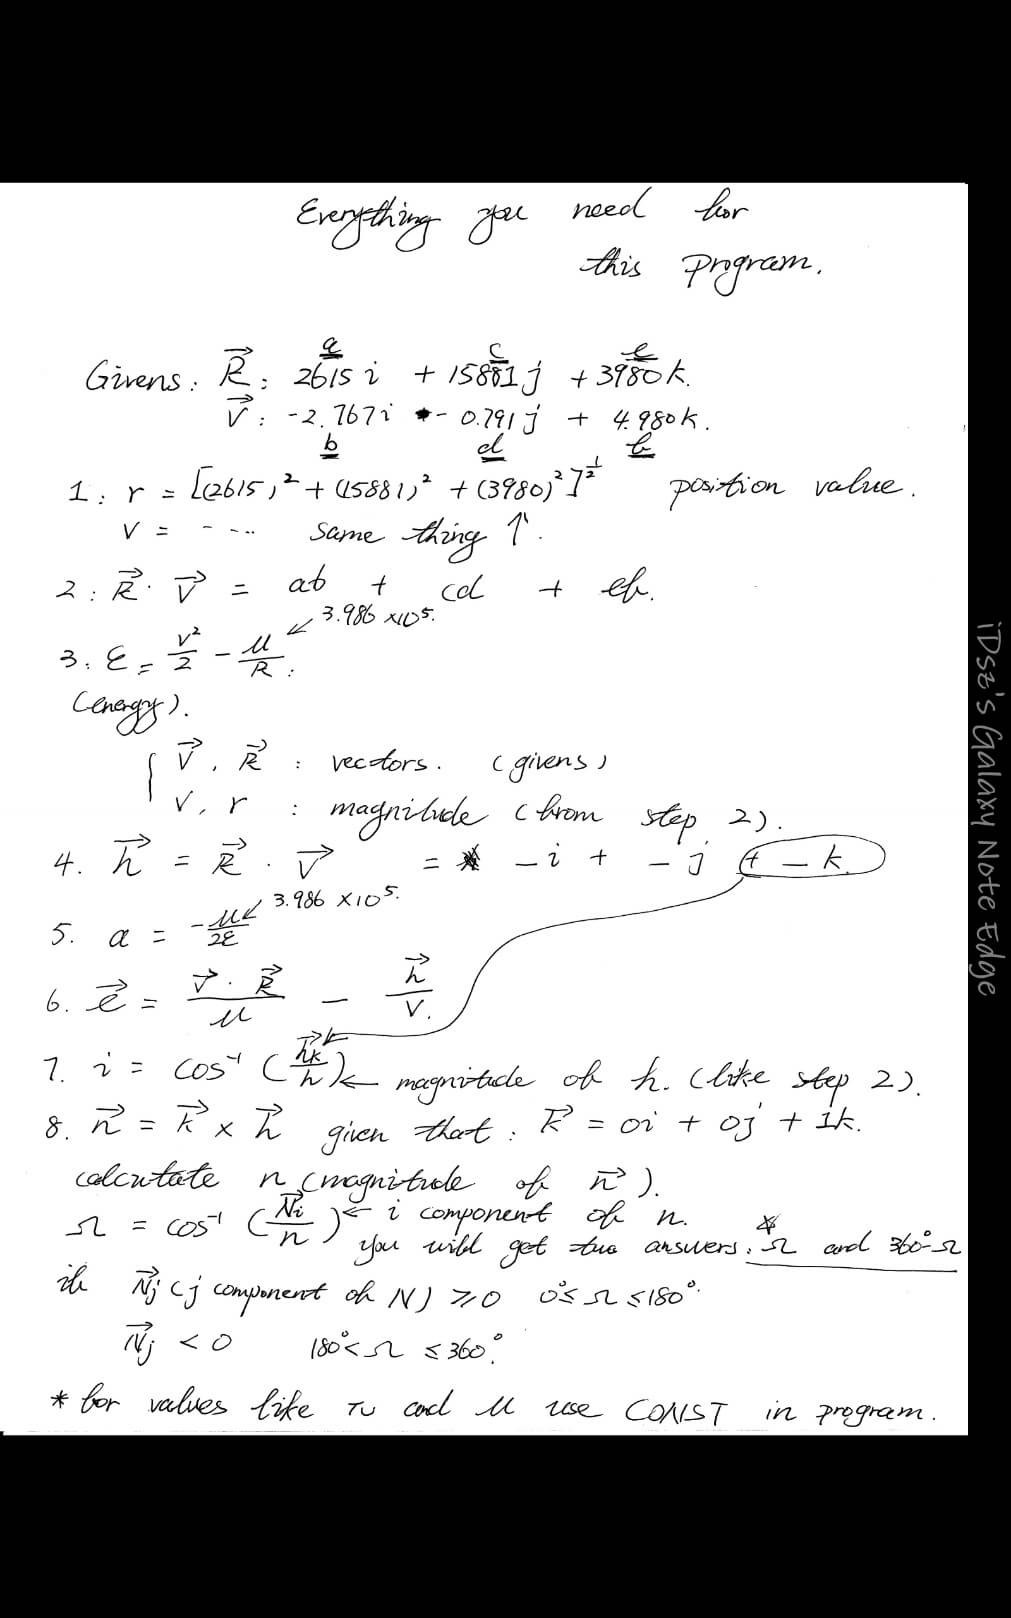 Everything you need for
this program.
a c e
Givens: R⃗: 2615 i + 15881 j + 3980 k.
V⃗: -2.767 i - 0.791 j + 4.980 k.
b d f
1: r = [(2615)² + (15881)² + (3980)²]^½ position value.
v = - - - - same thing ↑.
2: R⃗ · V⃗ = ab + cd + ef.
3: ε = v²/2 - μ/R. ↙ 3.986 ×10⁵.
(energy).
{ V⃗, R⃗ : vectors. (givens)
v, r : magnitude (from step 2).
4. h⃗ = R⃗ · V⃗ = _ i + _ j + _ k.
5. a = -μ/2ε ↙ 3.986 ×10⁵.
6. e⃗ = V⃗ · R⃗/μ - h⃗/v.
7. i = cos⁻¹ (h⃗k/h) ← magnitude of h. (like step 2).
8. n⃗ = K⃗ × h⃗ given that: K⃗ = 0i + 0j + 1k.
calculate n (magnitude of n⃗).
Ω = cos⁻¹ (N⃗i/n) ← i component of n.
you will get two answers: Ω and 360°-Ω
if N⃗j (j component of N) ≥ 0 0° ≤ Ω ≤ 180°.
N⃗j < 0 180° < Ω ≤ 360°.
* for values like TU and μ use CONST in program.
iDsz's Galaxy Note Edge